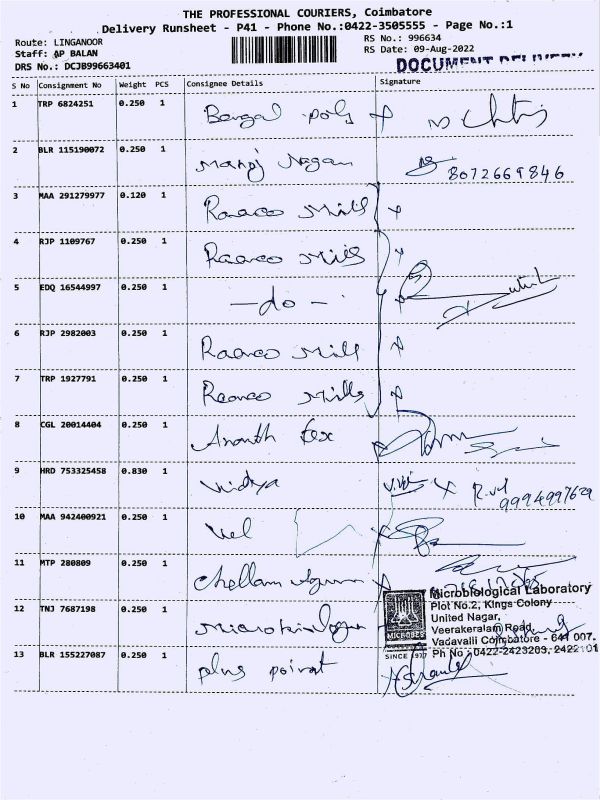 THE PROFESSIONAL COURIERS, Coimbatore
Delivery Runsheet - P41 - Phone No.:0422-3505555 - Page No.:1
Route: LINGANOOR
RS No.: 996634
Staff: AP BALAN
RS Date: 09-Aug-2022
DRS No.: DCJB99663401
DOCUMENT DELIVERY
S No Consignment No Weight PCS Consignee Details Signature
1 TRP 6824251 0.250 1 Bengal poly
2 BLR 115190072 0.250 1 Manoj Nagan 8072669846
3 MAA 291279977 0.120 1 Raaaco Mills
4 RJP 1109767 0.250 1 Raaaco Mills
5 EDQ 16544997 0.250 1 - do -
6 RJP 2982003 0.250 1 Raaaco Mill
7 TRP 1927791 0.250 1 Raaaco Mills
8 CGL 20014404 0.250 1 Ananth Tex
9 HRD 753325458 0.830 1 Vidya R.vel
9994997629
10 MAA 942400921 0.250 1 Vel
11 MTP 280809 0.250 1 Chellam
12 TNJ 7687198 0.250 1
13 BLR 155227087 0.250 1 plus point
Microbiological Laboratory
Plot No.2, Kings Colony
United Nagar,
Veerakeralam Road,
Vadavalli Coimbatore - 641 007.
Ph No : 0422-2423203, 2422101
MICROBES
SINCE 1977